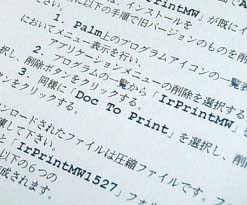 PrintMW」が既にイ
は、インストールを
に以下の手順で旧バージョンのものを削
1. Palm上のプログラムアイコンの一覧
においてメニュー表示を行い、
2. アプリケーションメニューの削除を選択する
3. プログラムの一覧から「IrPrintMW」
択し、削除ボタンをクリックする。
同様に「Doc To Print」を選択し、削
をクリックする。
ンロードされたファイルは圧縮ファイルです。フ
凍して下さい。
以下の6つの
「IrPrintMW1527」フォ
成されます。